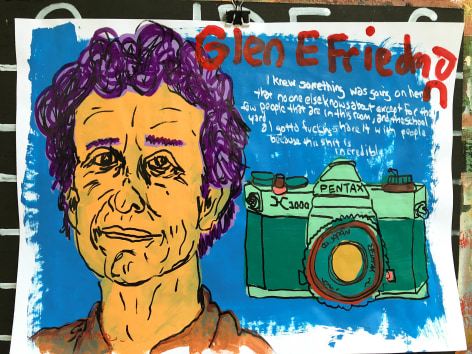 Glen E Friedman
I knew something was going on here
that no one else knows about except for the
few people that are in this room, and the school
yard
I gotta fucking share it with people
because this shit is
incredible
PENTAX
K1000